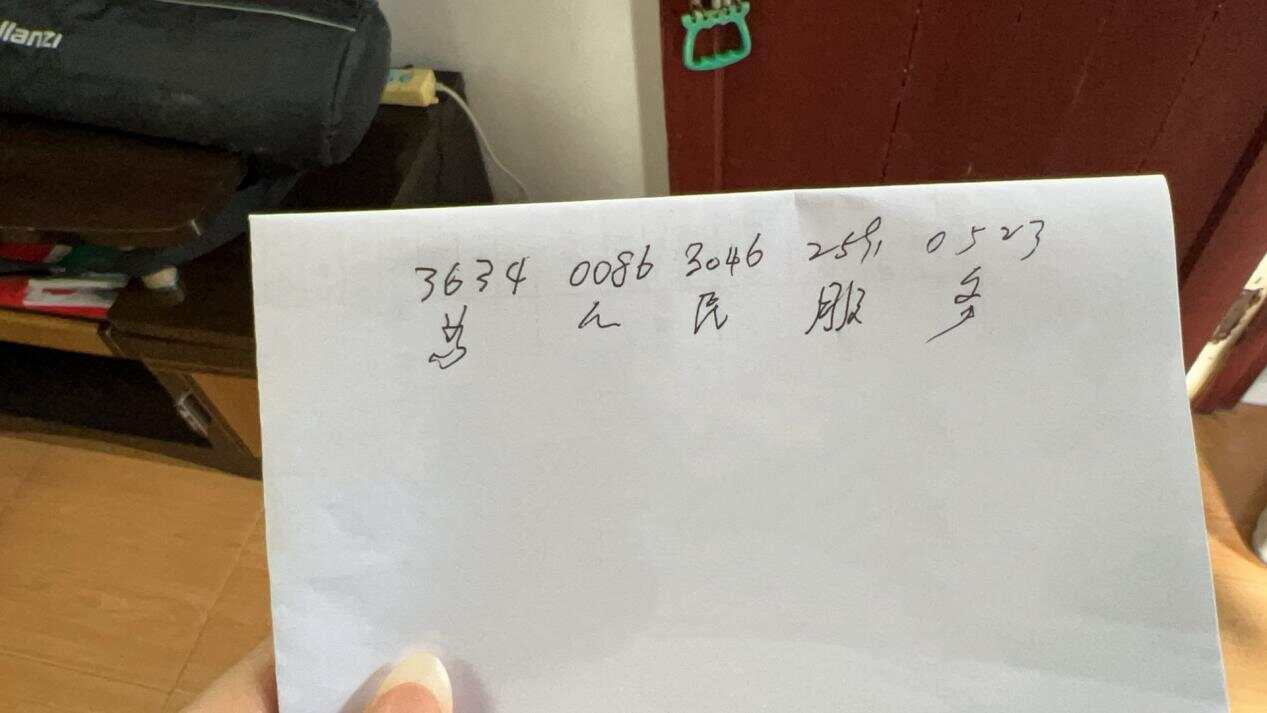 3634 0086 3046 2591 0523
為 人 民 服 务